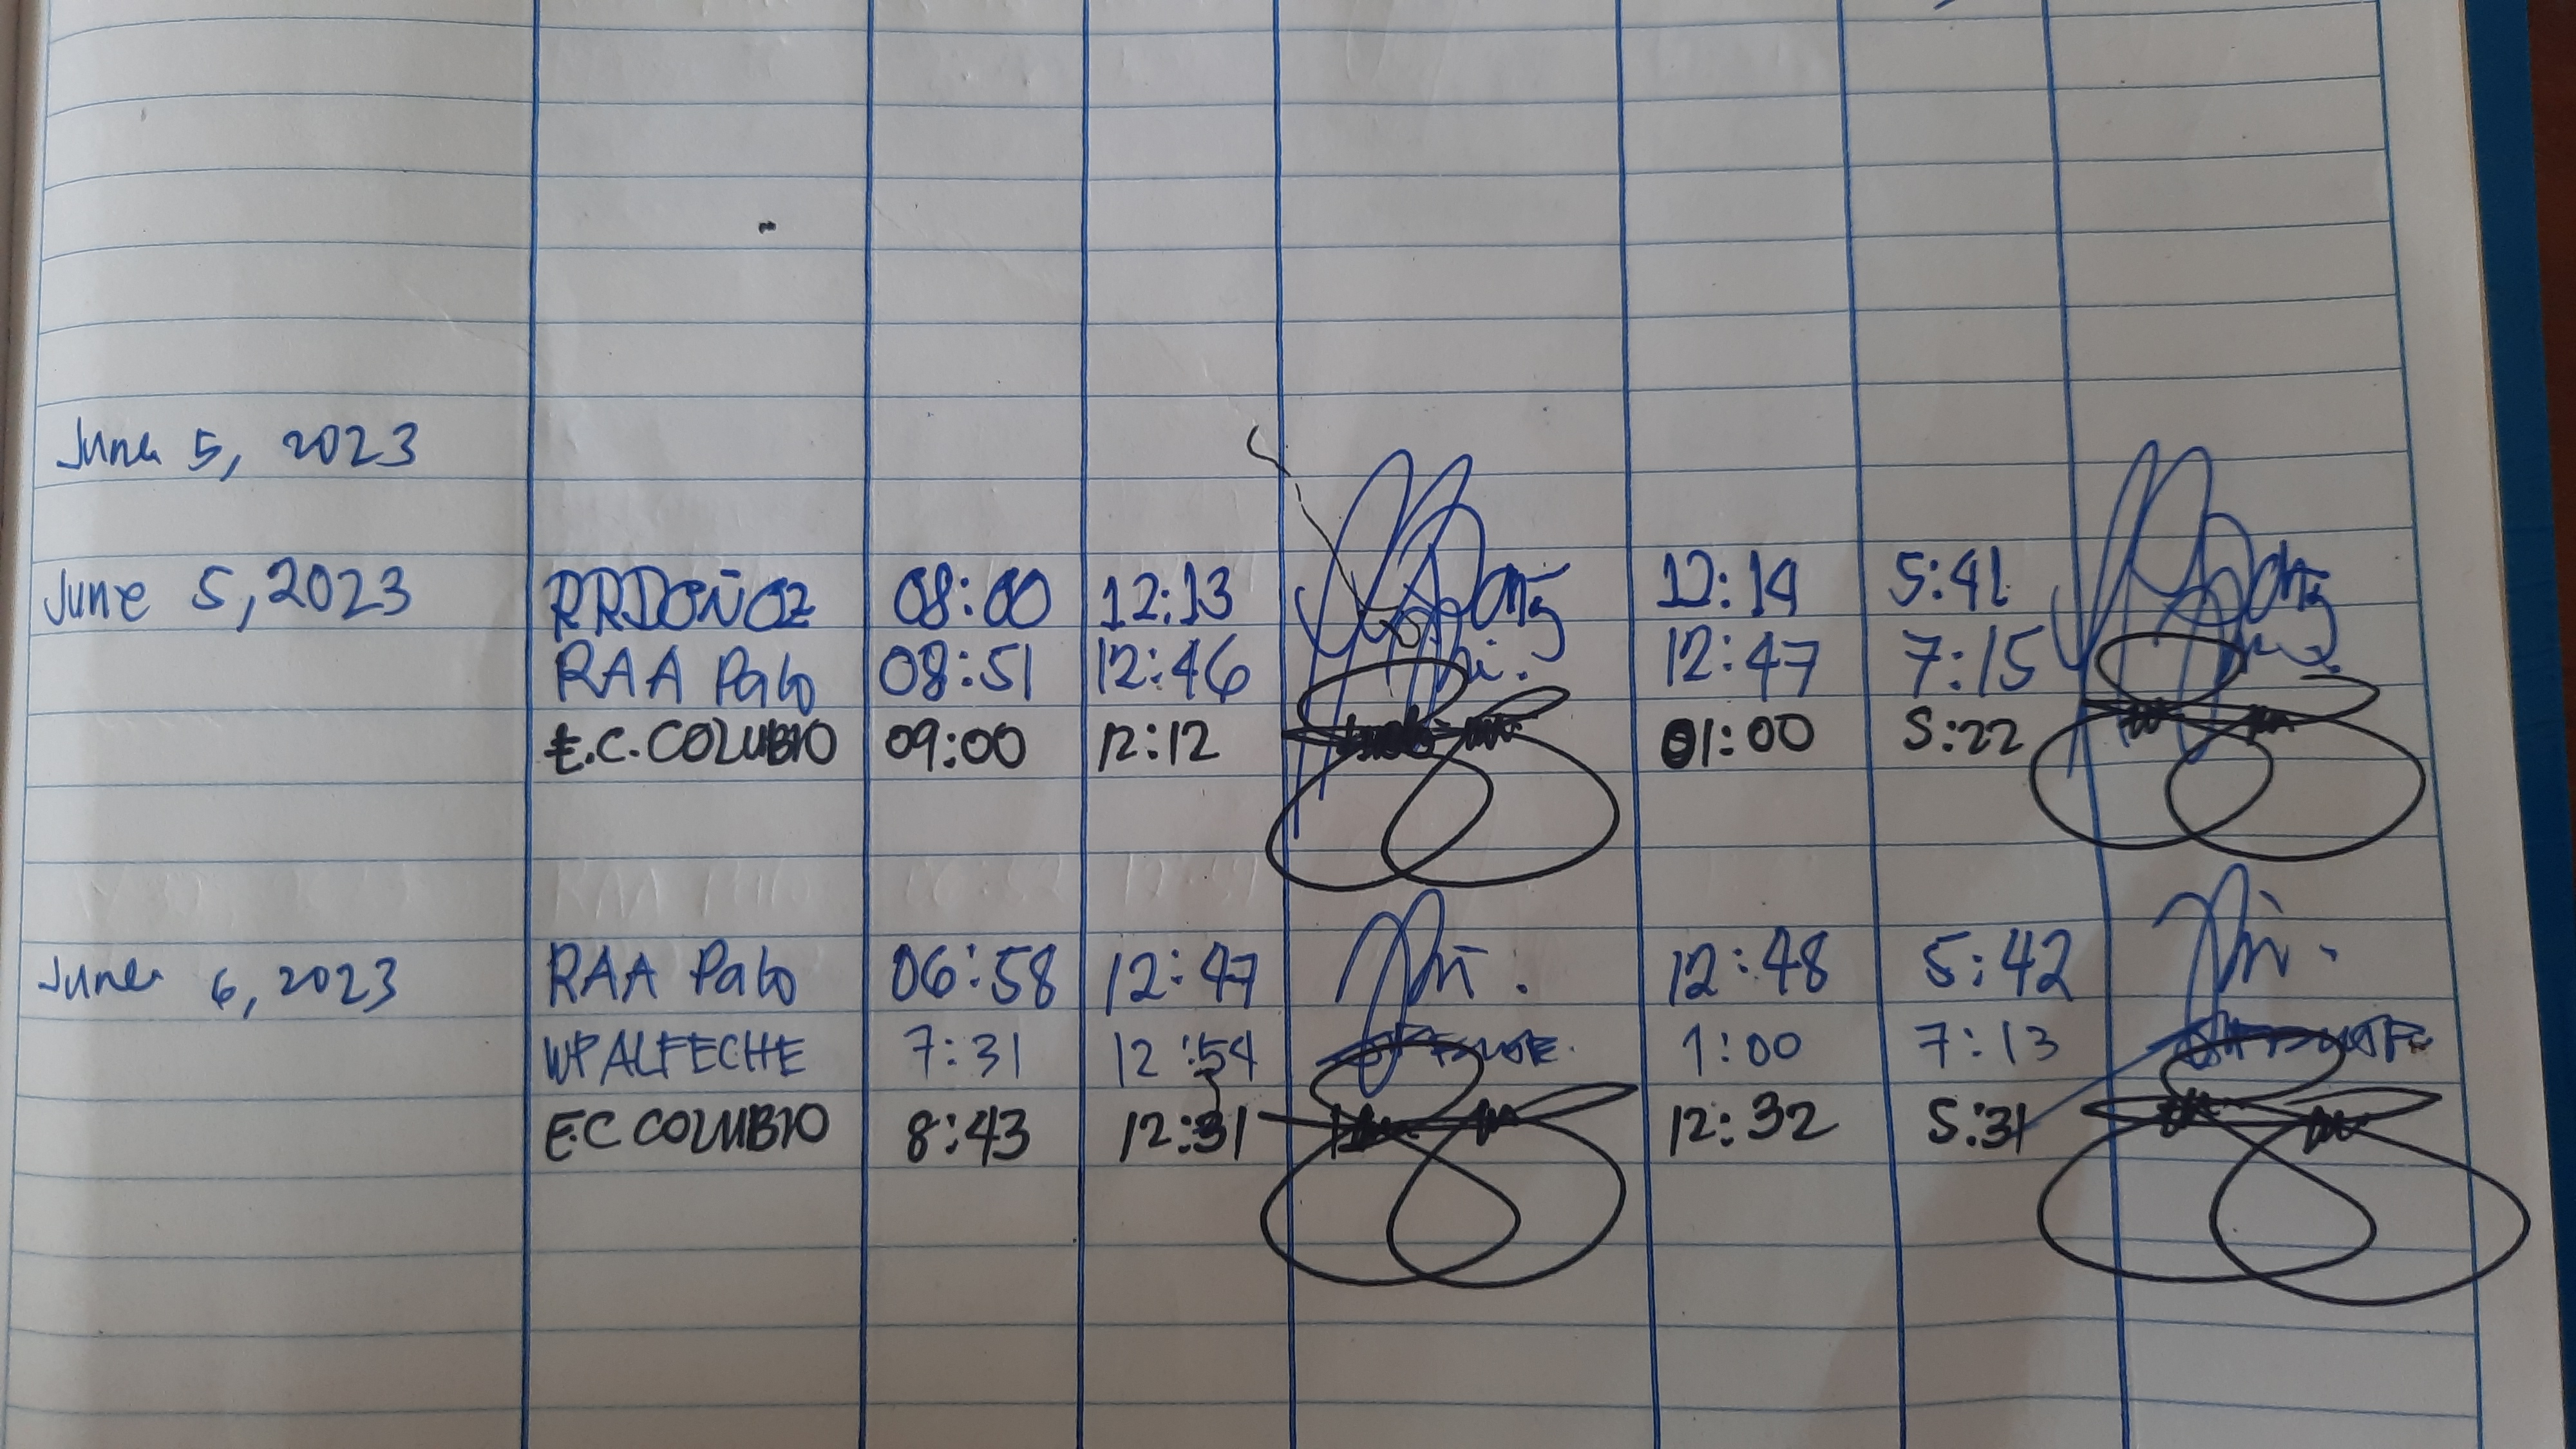 June 5, 2023
June 5, 2023 RRDOÑOZ 08:00 12:13 12:14 5:41
RAA Palo 08:51 12:46 12:47 7:15
E.C. COLUBIO 09:00 12:12 01:00 5:22
June 6, 2023 RAA Palo 06:58 12:47 12:48 5:42
WPALFECHE 7:31 12:54 1:00 7:13
E.C COLUBIO 8:43 12:31 12:32 5:31